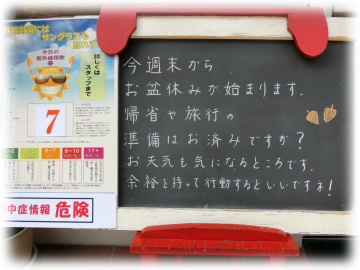 サングラスも
今日の
紫外線指数
詳しくは
スタッフまで
7
11+
熱中症情報 危険
今週末から
お盆休みが始まります.
帰省や旅行の
準備はお済みですか?
お天気も気になるところです.
余裕を持って行動するといいですネ!